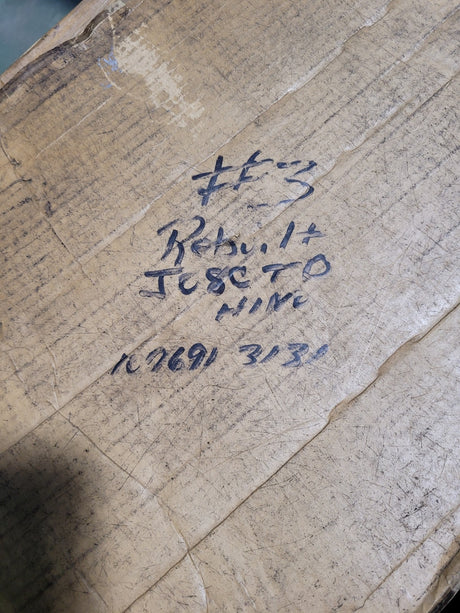 #3
Rebuilt
JC8C TO
HINO
K7691 3131